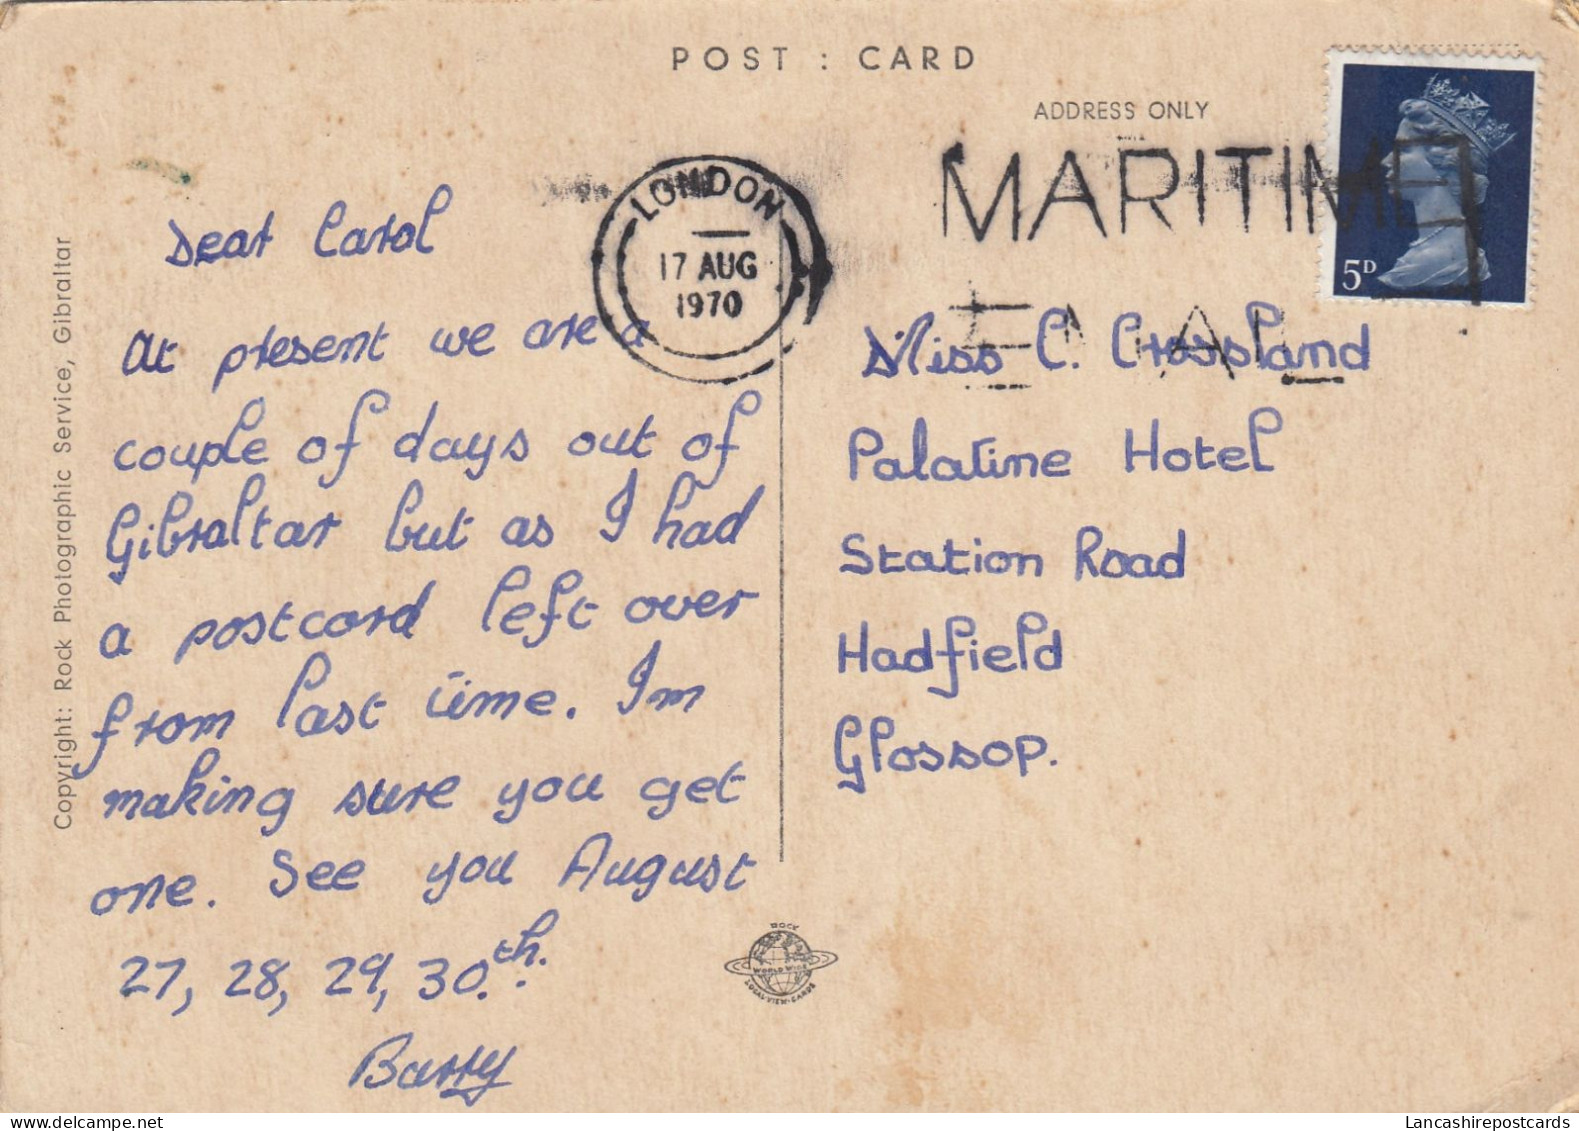 POST : CARD
ADDRESS ONLY
MARITIME
LONDON
17 AUG
1970
5D
Dear Carol
At present we are a
couple of days out of
Gibraltar but as I had
a postcard left over
from last time. Im
making sure you get
one. See you August
27, 28, 29, 30.th.
Barry
Miss C. Crossland
Palatine Hotel
Station Road
Hadfield
Glossop.
Copyright: Rock Photographic Service, Gibraltar
ROCK
WORLD WIDE
LOCAL-VIEW-CARDS
Lancashirepostcards